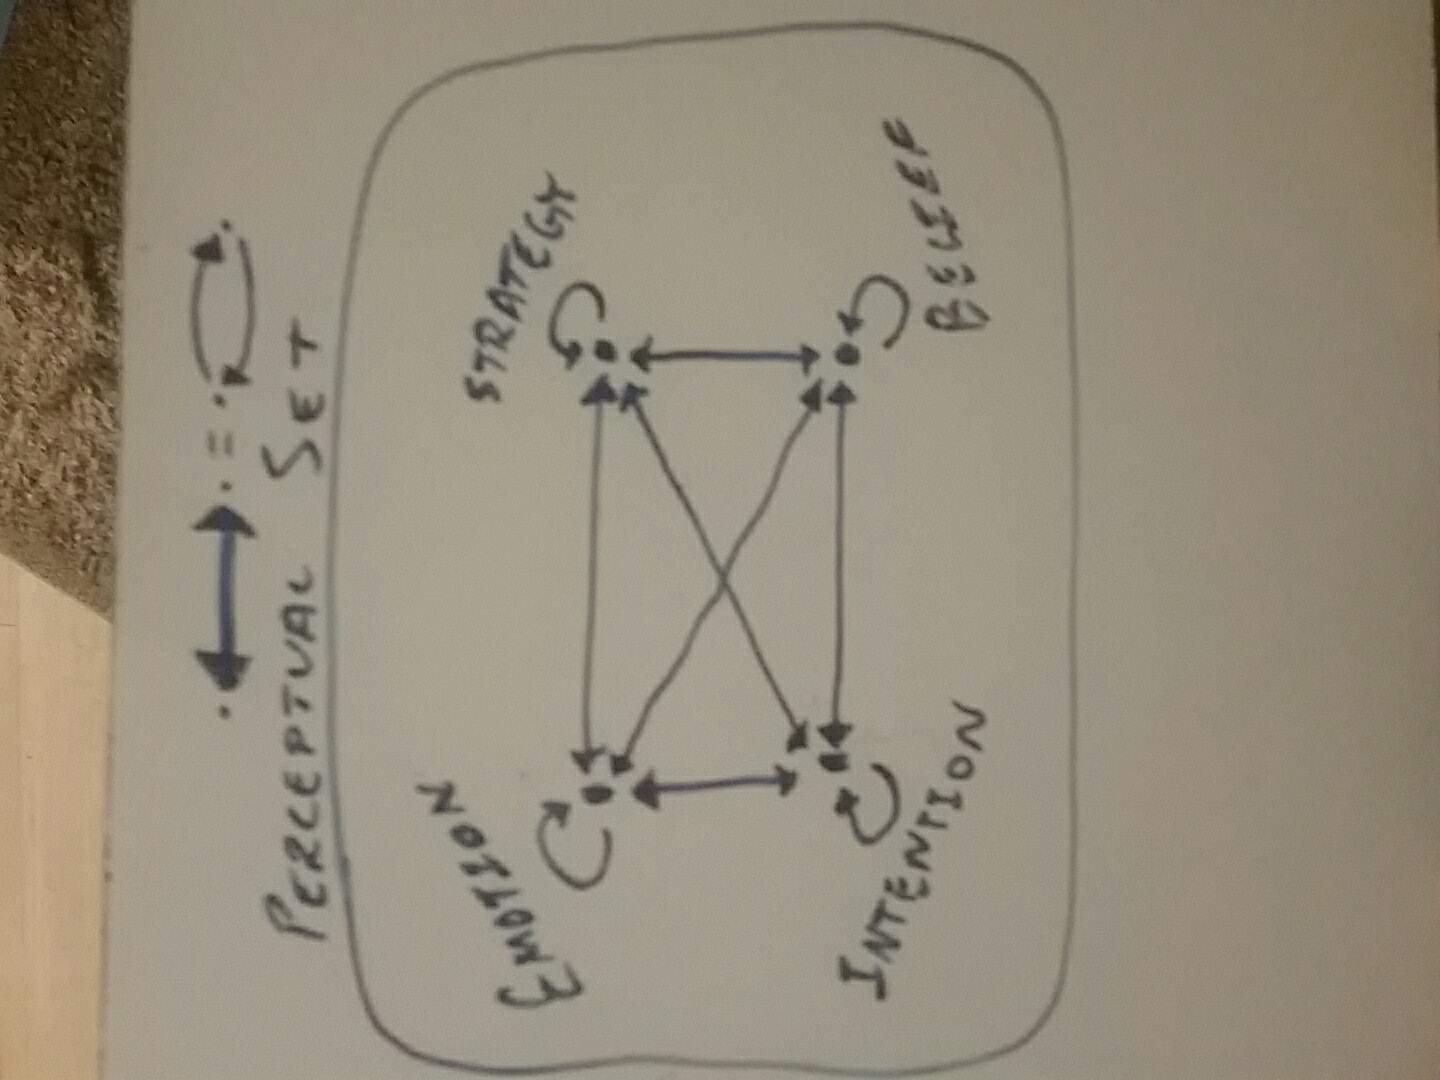 =
PERCEPTUAL SET
EMOTION
STRATEGY
INTENTION
BELIEF